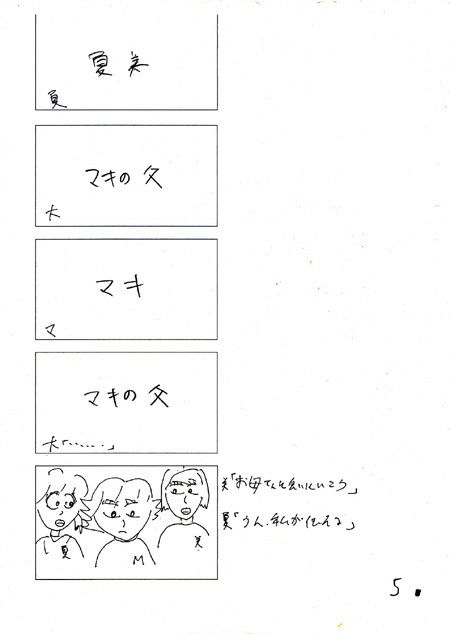 夏美
夏
マキの父
大
マキ
マ
マキの父
大「……」
夏
M
美
美「お母さんに会いにいこう」
夏「うん、私が伝える」
5.